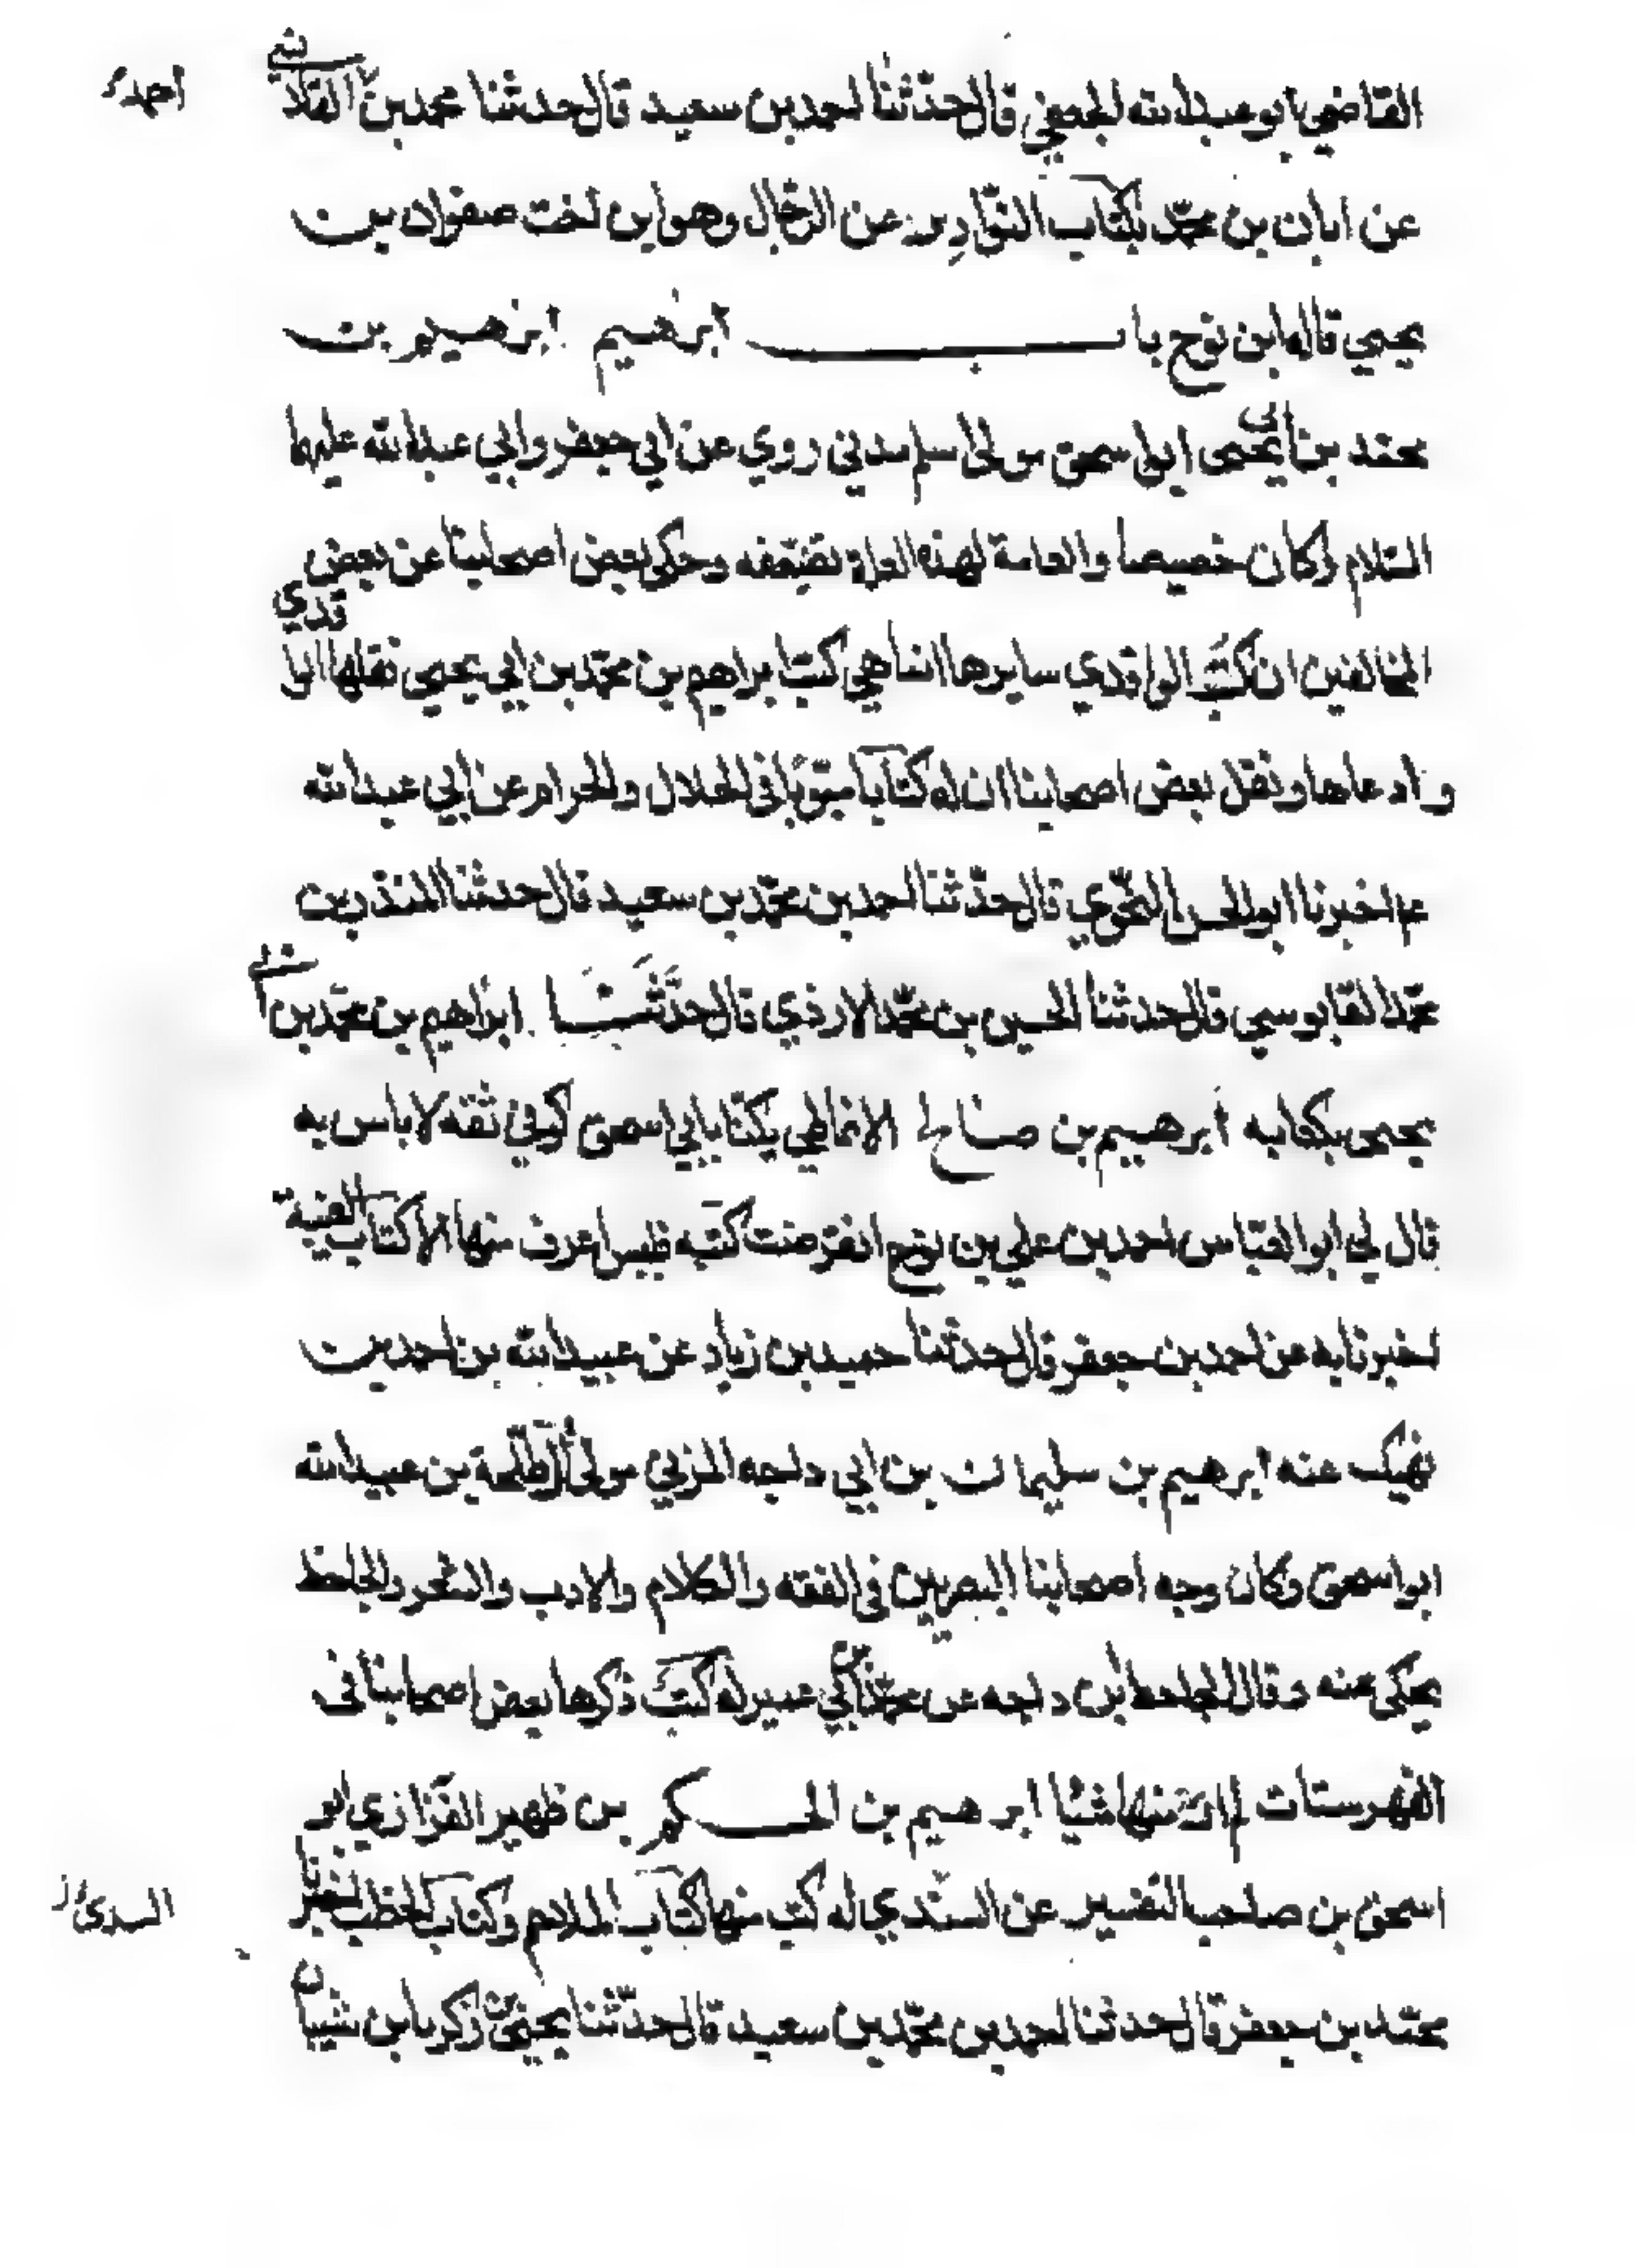 القاضي ابو عبد الله الجعفي قال حدثنا احمد بن سعيد قال حدثنا محمد بن القلانسي
احمد
عن ابان بن محمد بكتاب النوادر عن الرجال وهو ابن اخت صفوان بن
يحيى قاله ابن نوح باب ابرهيم ابرهيم بن
محمد بن أبي يحيى ابو اسحق مولى اسلم مدني روي عن ابي جعفر وابي عبد الله عليهما
السلام وكان خصيصا والعامة لهذه العلة تضعفه وحكى بعض اصحابنا عن بعض
المخالفين ان كتب الواقدي سايرها انما هي كتب ابراهيم بن محمد بن ابي يحيى نقلها الواقدي
وادعاها ونقل بعض اصحابنا ان له كتابا مبوبا في الحلال والحرام عن ابي عبد الله
ع اخبرنا ابو الحسن النحوي قال حدثنا احمد بن محمد بن سعيد قال حدثنا المنذر بن
محمد القابوسي قال حدثنا الحسين بن محمد الازدي قال حدثنا ابراهيم بن محمد بن ابي
يحيى بكتابه ابرهيم بن صالح الانماطي يكنا بابي اسحق كوفي ثقه لا باس به
قال لي ابو العباس احمد بن علي بن نوح انقرضت كتبه فليس اعرف منها الا كتاب الغيبة
اخبرنا به عن احمد بن جعفر قال حدثنا حميد بن زياد عن عبيد الله بن احمد بن
نهيك عنه ابرهيم بن سليمان بن ابي داحه المزني مولى آل طلحة بن عبيد الله
ابو اسحق وكان وجه اصحابنا البصريين في الفقه والكلام والادب والشعر والجاحظ
يحكى عنه وقال الجاحظ ابن داحه عن محمد بن أبي عمير له كتب ذكرها بعض اصحابنا في
الفهرستات لم ار منها شيئا ابرهيم بن الحكم بن ظهير الفزازي ابو
اسحق بن صاحب التفسير عن السندي له كتب منها كتاب الملاحم وكتاب الخطب اخبرنا
السدي
محمد بن جعفر قال حدثنا احمد بن محمد بن سعيد قال حدثنا يحيى بن زكريا بن شيبان